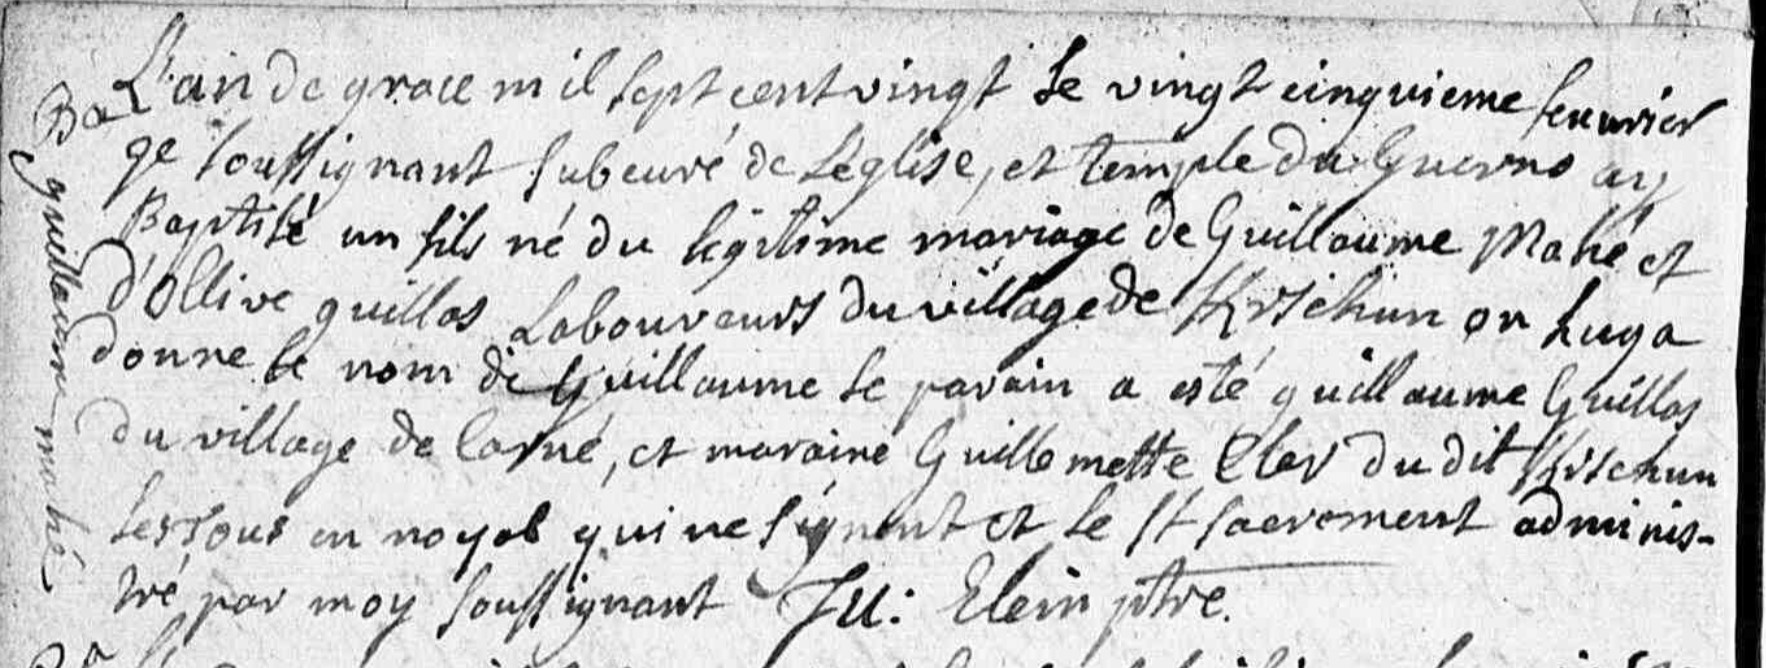 Ba
guillaume mahé
L'an de grace mil sept cent vingt le vingt cinquieme feuvrier
ge soussignant subcuré de L'eglise, et temple du Guerno ay
Baptisé un fils né du légitime mariage de Guillaume Mahé et
d'ollive guillas Laboureurs du village de on luy a
donne le nom de Guillaume le parain a esté guillaume Guillas
du village de Carné, et maraine Guillemette Eler du dit
les tous en noyal qui ne signent et le St sacrement adminis-
tré par moy soussignant Ju: Elein ptre.